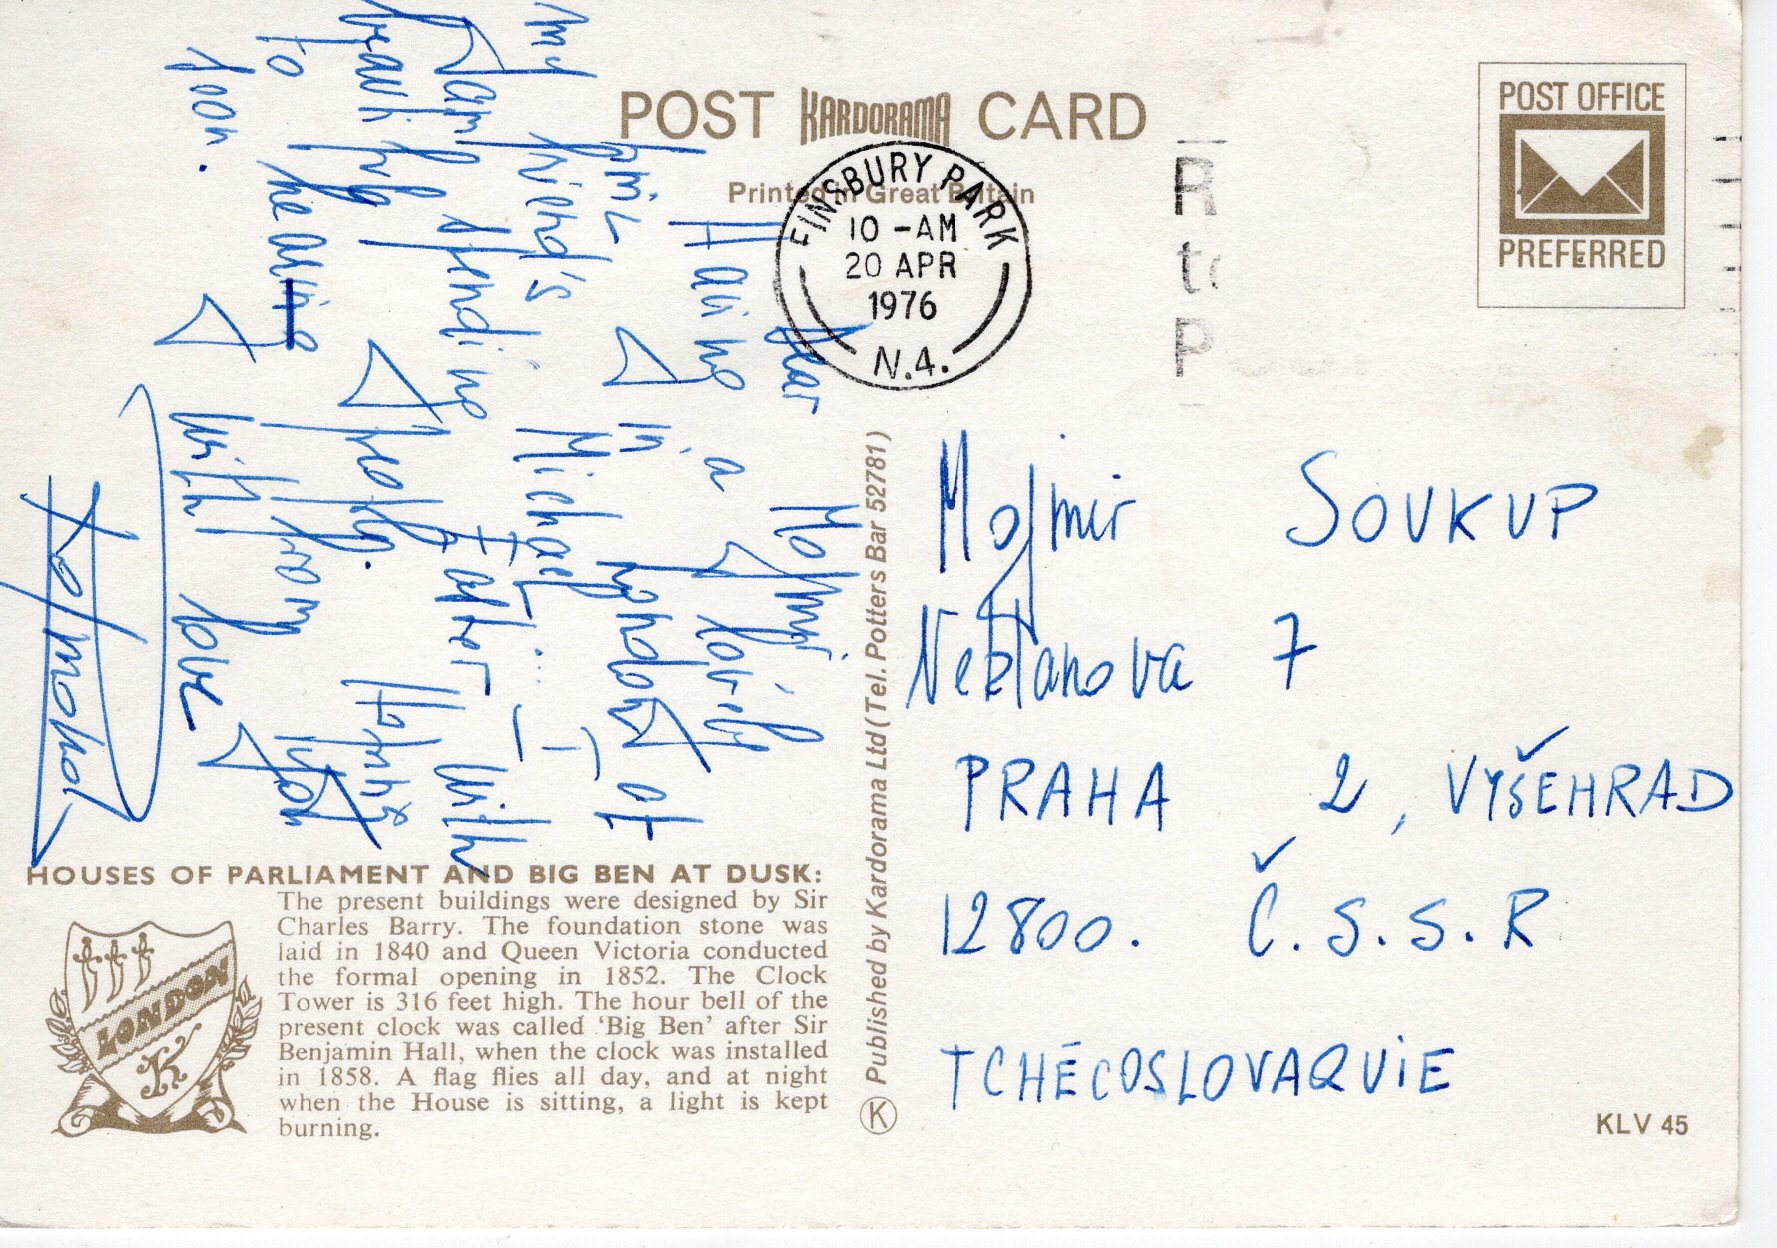 POST KARDORAMA CARD
Printed in Great Britain
FINSBURY PARK
10 -AM
20 APR
1976
N.4.
R
to
P
POST OFFICE
PREFERRED
Dear Mojmír,
Having a lovely
time in London at
my friend's Michael
I am spending Easter with
beautiful weather. Hoping
to hearing from you
soon. With love
Mojmir SOUKUP
Neklanova 7
PRAHA 2, VYŠEHRAD
12800. Č.S.S.R
TCHÉCOSLOVAQUIE
Published by Kardorama Ltd (Tel. Potters Bar 52781)
K
HOUSES OF PARLIAMENT AND BIG BEN AT DUSK:
The present buildings were designed by Sir
Charles Barry. The foundation stone was
laid in 1840 and Queen Victoria conducted
the formal opening in 1852. The Clock
Tower is 316 feet high. The hour bell of the
present clock was called ‘Big Ben’ after Sir
Benjamin Hall, when the clock was installed
in 1858. A flag flies all day, and at night
when the House is sitting, a light is kept
burning.
LONDON
K
KLV 45